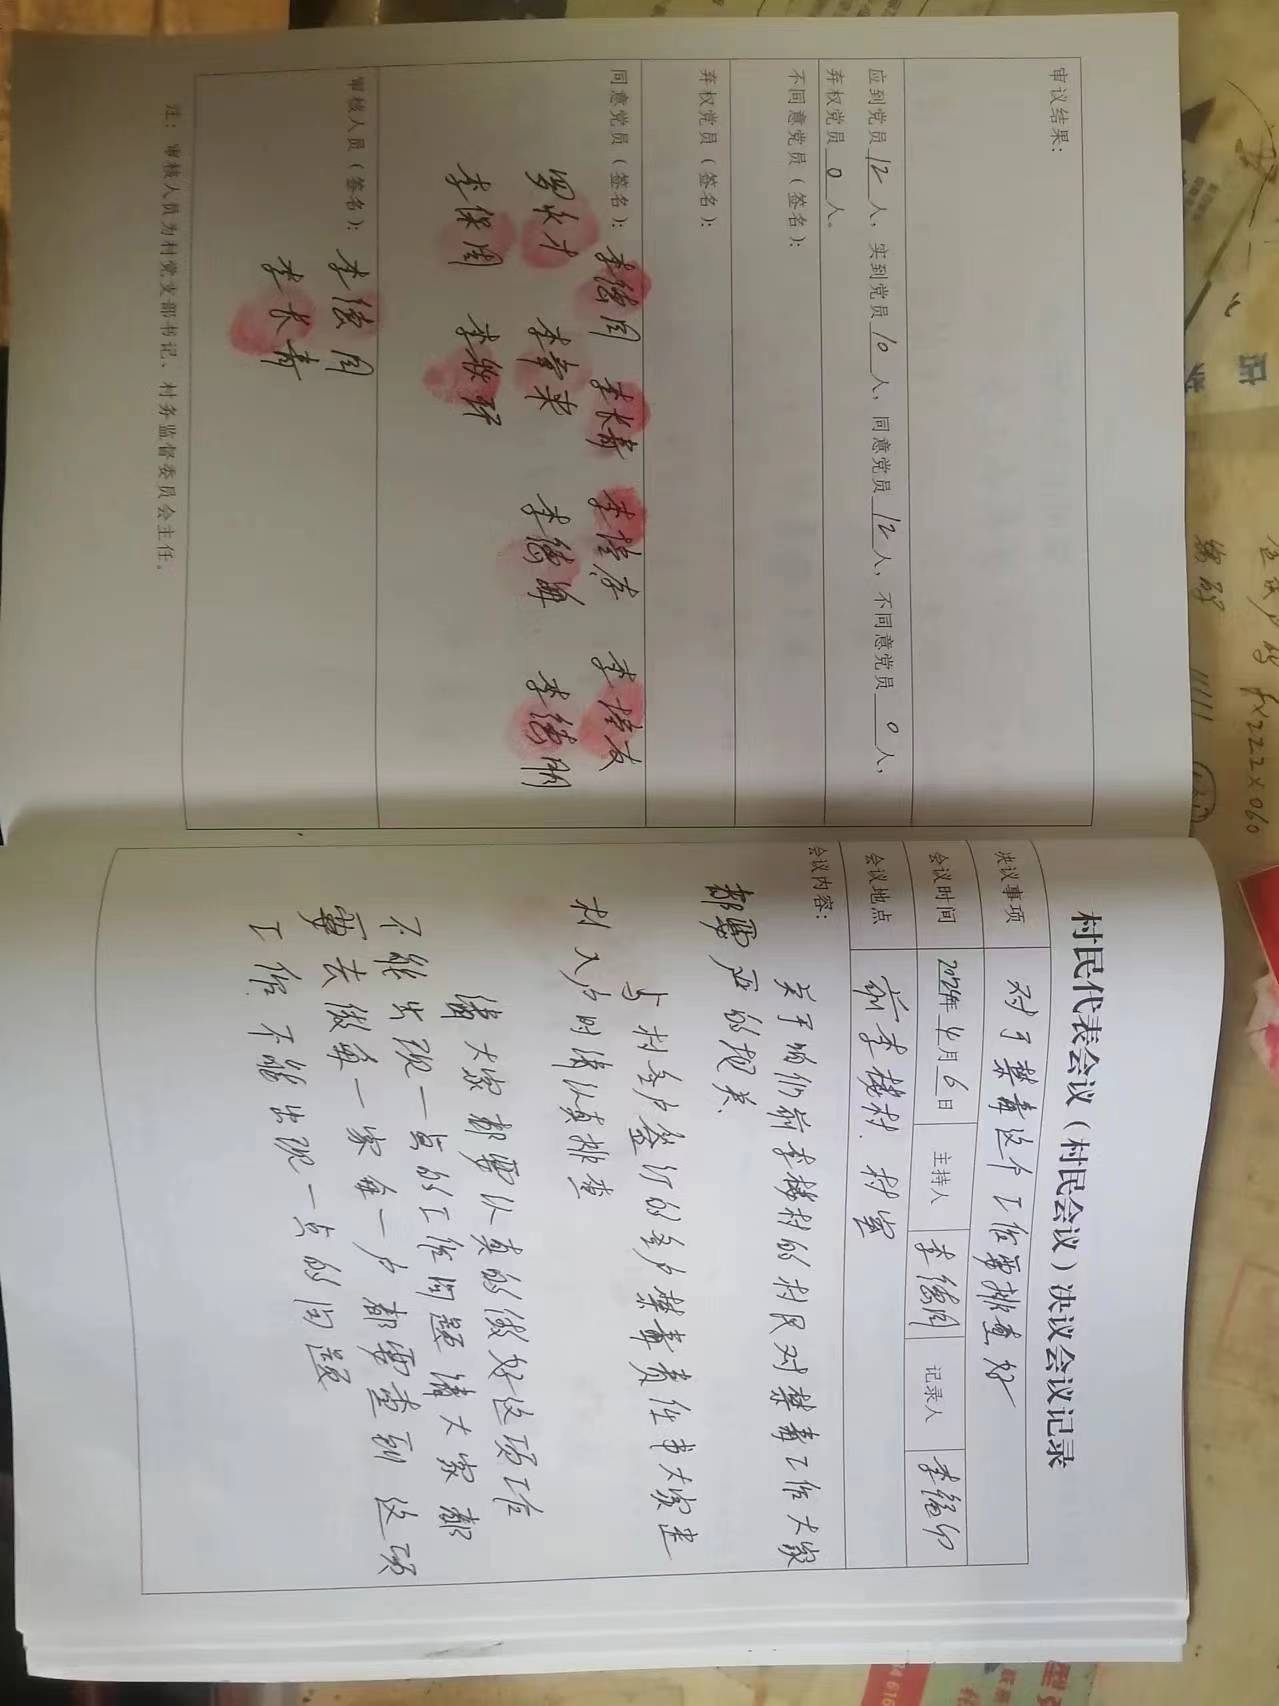 审议结果：
应到党员12人，实到党员10人，同意党员12人，不同意党员0人，
弃权党员0人。
不同意党员（签名）：
弃权党员（签名）：
同意党员（签名）：
李长青
李保国
审核人员（签名）：
李长青
注：审核人员为村党支部书记、村务监督委员会主任。
村民代表会议（村民会议）决议会议记录
决议事项 对于禁毒这个工作需排查好
会议时间 2024年4月6日 主持人 记录人
会议地点 前李楼村 村室
会议内容：
关于咱们前李楼村的村民对禁毒工作大家
都要严的把关.
村多户签订的多户禁毒责任书大家进
村入户时请认真排查
请大家都要认真的做好这项工作
不能出现一点的工作问题请大家都
要去做每一家每一户都要查到 这项
工作不能出现一点的问题